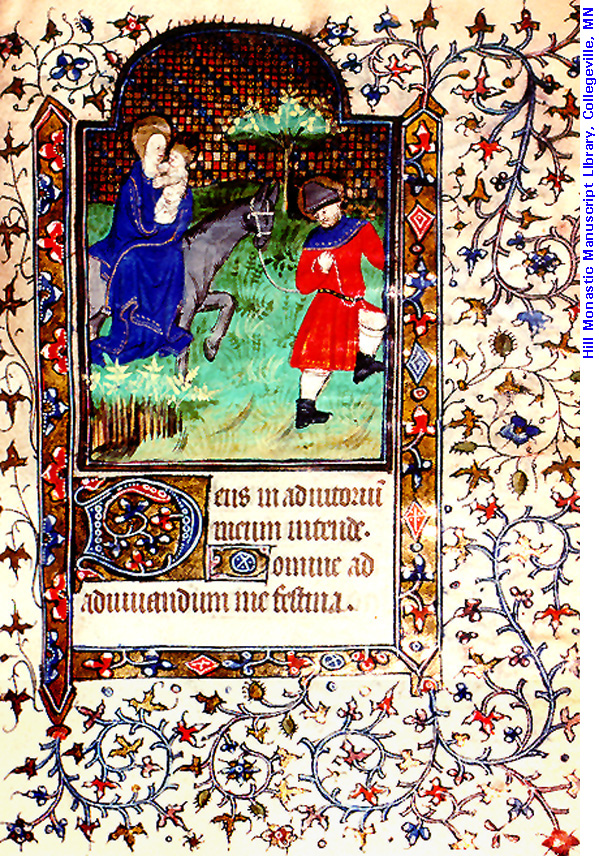 Deus in adiutoriū
meum intende.
Domine ad
adiuuandum me festina.
Hill Monastic Manuscript Library, Collegeville, MN